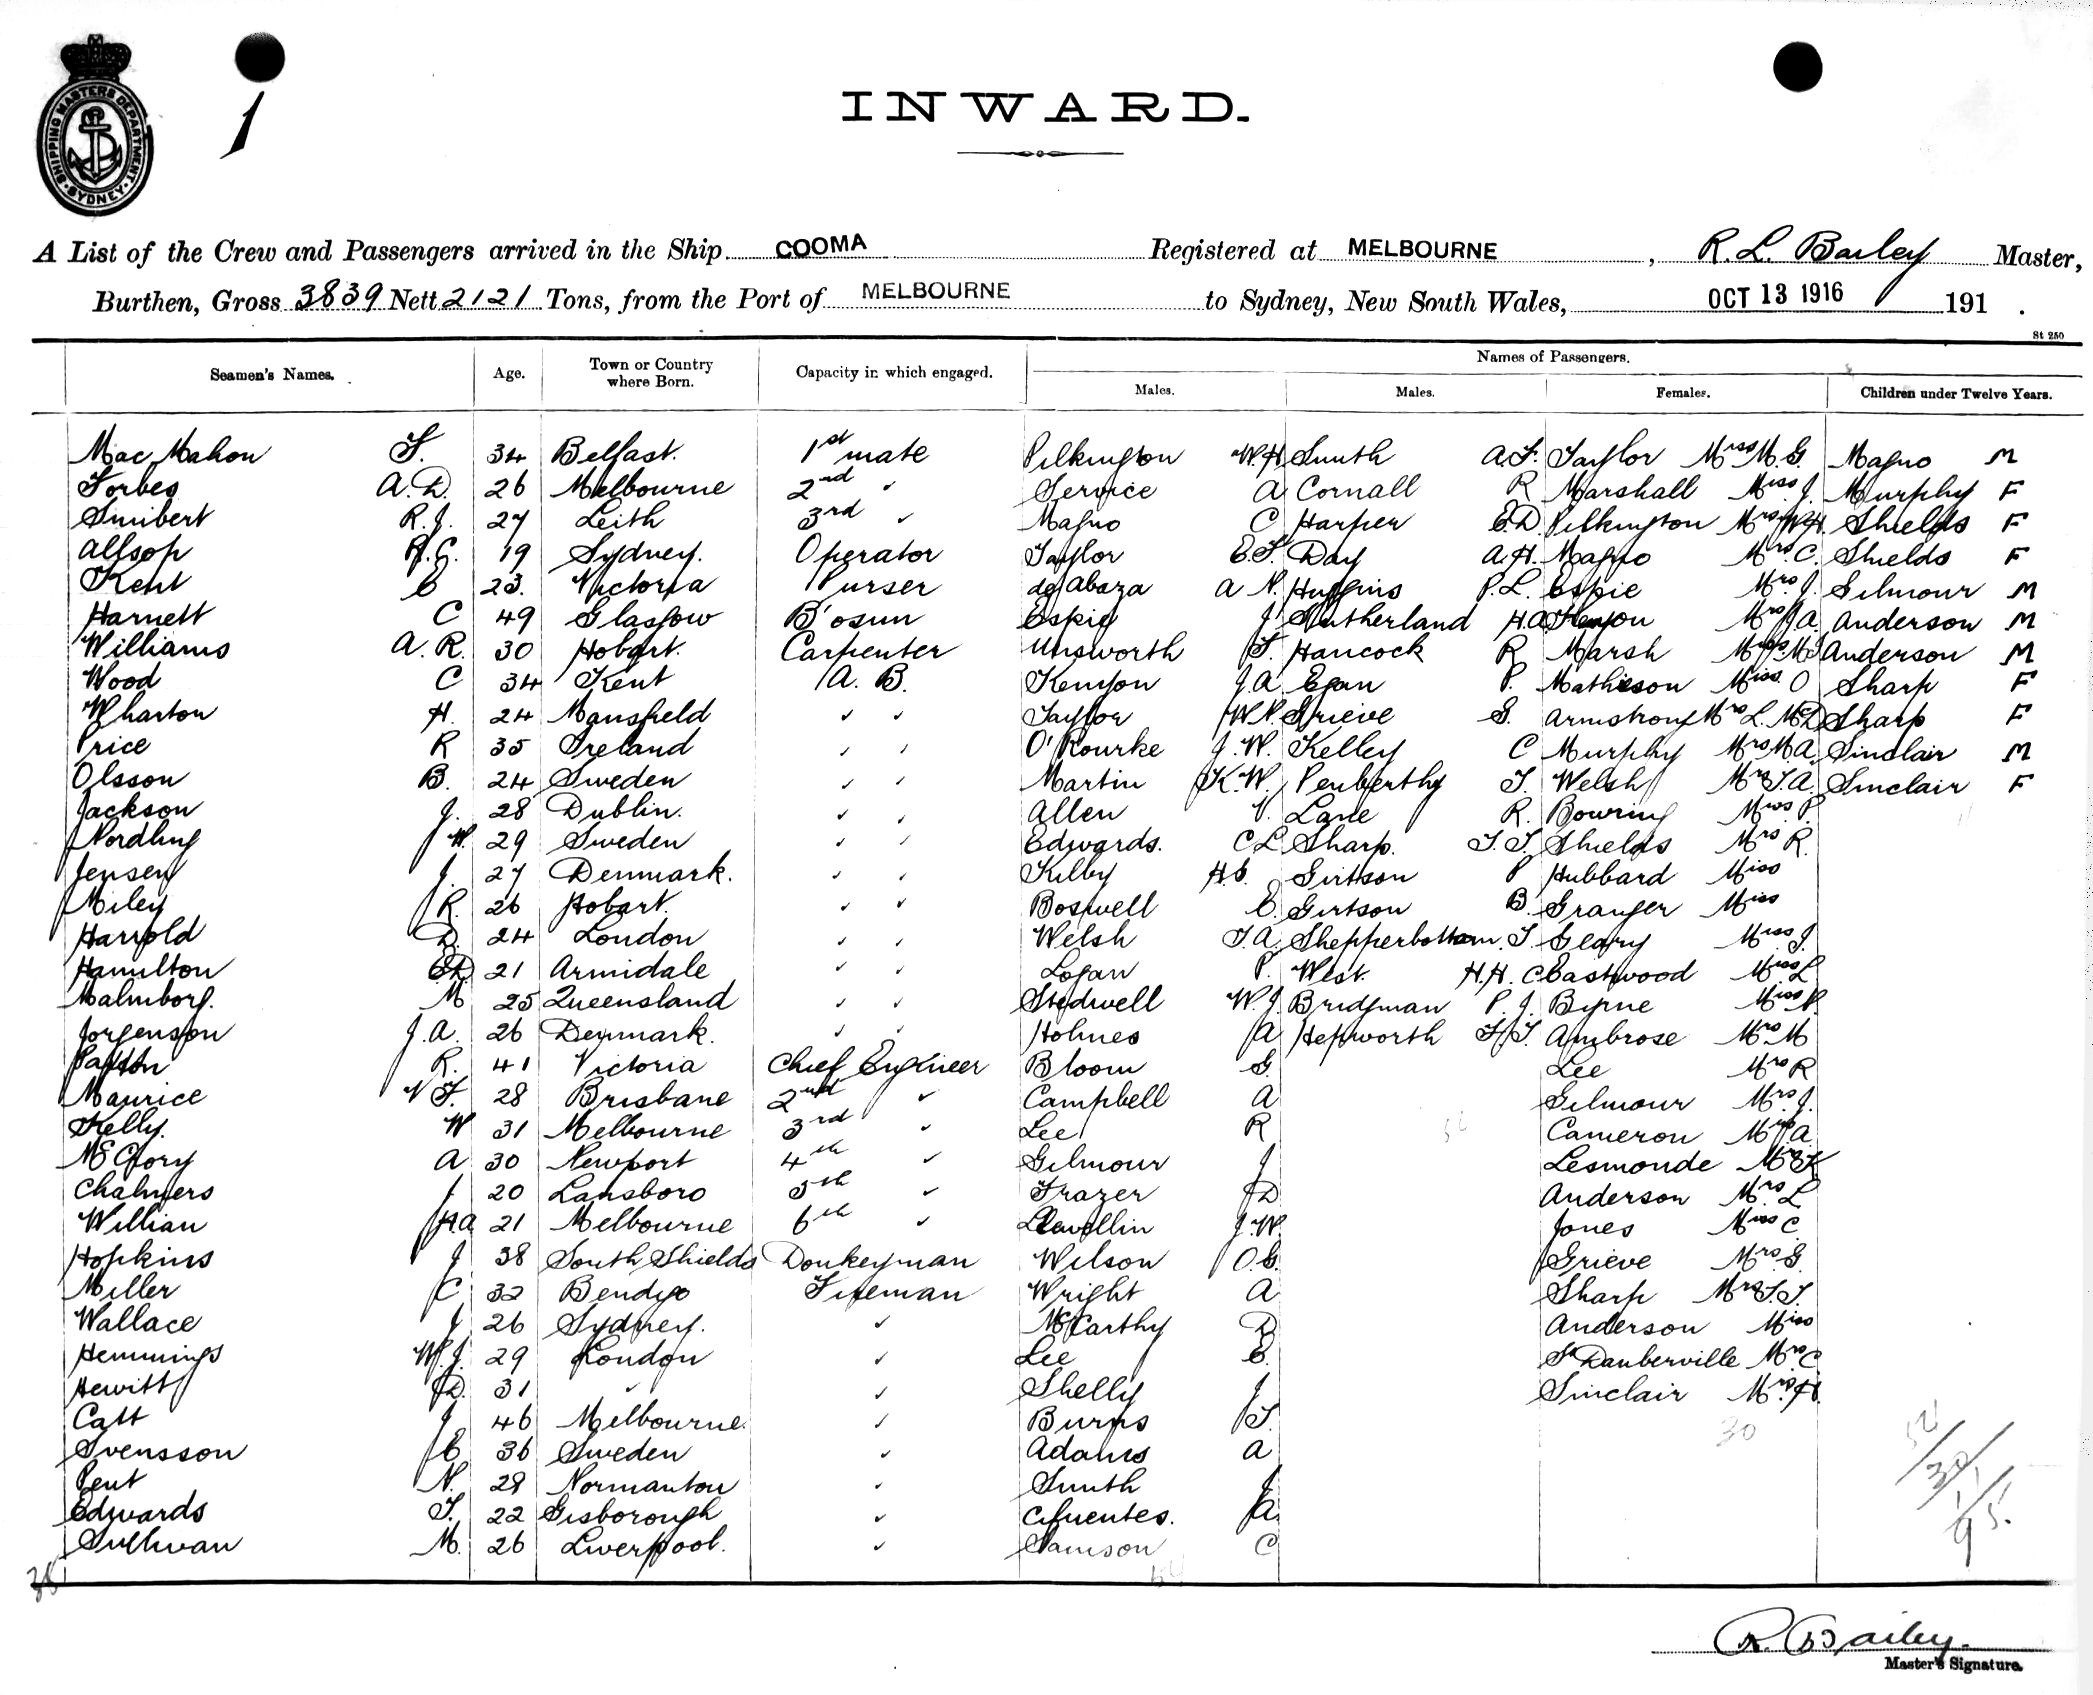 SHIPPING MASTERS DEPARTMENT. SYDNEY
1
INWARD.
A List of the Crew and Passengers arrived in the Ship COOMA Registered at MELBOURNE, R. L. Bailey Master,
Burthen, Gross 3839 Nett 2121 Tons, from the Port of MELBOURNE to Sydney, New South Wales, OCT 13 1916 191 .
St 250
Seamen's Names. Age. Town or Country where Born. Capacity in which engaged. Names of Passengers.
Males. Males. Females. Children under Twelve Years.
Mac Mahon F. 34 Belfast. 1st mate Pilkington W.H Smith A.F. Taylor Miss M.G. Magno M
Forbes A.D. 26 Melbourne 2nd " Service A Cornall R Marshall Miss J. Murphy F
Smibert R.J. 27 Leith 3rd " Magno C Harper E.D Pilkington Mrs W.H. Shields F
Allsop R.C. 19 Sydney. Operator Taylor E.F. Day A.H. Magno Mrs C. Shields F
Kent E 23. Victoria Purser de Abaza A N. Huggins P.L. Espie Mrs J. Gilmour M
Harnett C 49 Glasgow B'osun Espie J Sutherland H.A Kenyon Mrs J A. Anderson M
Williams A.R. 30 Hobart. Carpenter Unsworth F. Hancock R Marsh Anderson M
Wood C 34 Kent A.B. Kenyon J.A Egan P. Mathieson Miss O Sharp F
Wharton H. 24 Mansfield " " Taylor W.N. Grieve G. Armstrong Mrs L. McD Sharp F
Price R 35 Ireland " " O'Rourke J.W. Kelley C Murphy Mrs M A. Sinclair M
Olsson B. 24 Sweden " " Martin K.W. Penberthy T. Welsh Mrs T.A. Sinclair F
Jackson J. 28 Dublin. " " Allen V. Lane R. Bowring Miss P.
Nordling W. 29 Sweden " " Edwards. C L Sharp. T.T. Shields Mrs R.
Jensen J. 27 Denmark. " " Kilby H.G. Girtson P Hubbard Miss
Miley R. 26 Hobart. " " Boswell E. Girtson B. Granger Miss
Harrold D. 24 London " " Welsh T.A. Shepperbottom. T. Geary Miss J.
Hamilton 21 Armidale " " Logan P. West. H.H.C Eastwood Miss L
Malmborg. M 25 Queensland " " Stedwell W.J. Bridgman P.J. Byrne Miss
Jorgenson J.A. 26 Denmark. " " Holmes A Hepworth F.T. Ambrose Mrs M
R. 41 Victoria Chief Engineer Bloom G. Lee Mrs R
Maurice V F. 28 Brisbane 2nd " Campbell A Gilmour Mrs J.
Kelly. W 31 Melbourne 3rd " Lee R Cameron Mrs A.
McGlory A 30 Newport 4th " Gilmour J Lesmonde
Chalmers J 20 Lansboro 5th " Frazer D Anderson Mrs L
Willian H.A 21 Melbourne 6th " Llewellin J.W. Jones Miss C.
Hopkins J 38 South Shields Donkeyman Wilson O.G. Grieve Mrs G.
Miller C 32 Bendigo Fireman Wright A Sharp Mrs T.T.
Wallace J 26 Sydney. " McCarthy D Anderson Miss
Hemmings W.J. 29 London " Lee E. St Dauberville Mrs C
Hewitt D. 31 " " Shelly J Sinclair Mrs H.
Catt J 46 Melbourne. " Burns T.
Svensson E 36 Sweden " Adams A
Pent N. 28 Normanton " Smith J
Edwards T. 22 Gisborough " Cifuentes. A
Sullivan M. 26 Liverpool. " Samson C
30
95
R. Bailey.
Master's Signature.